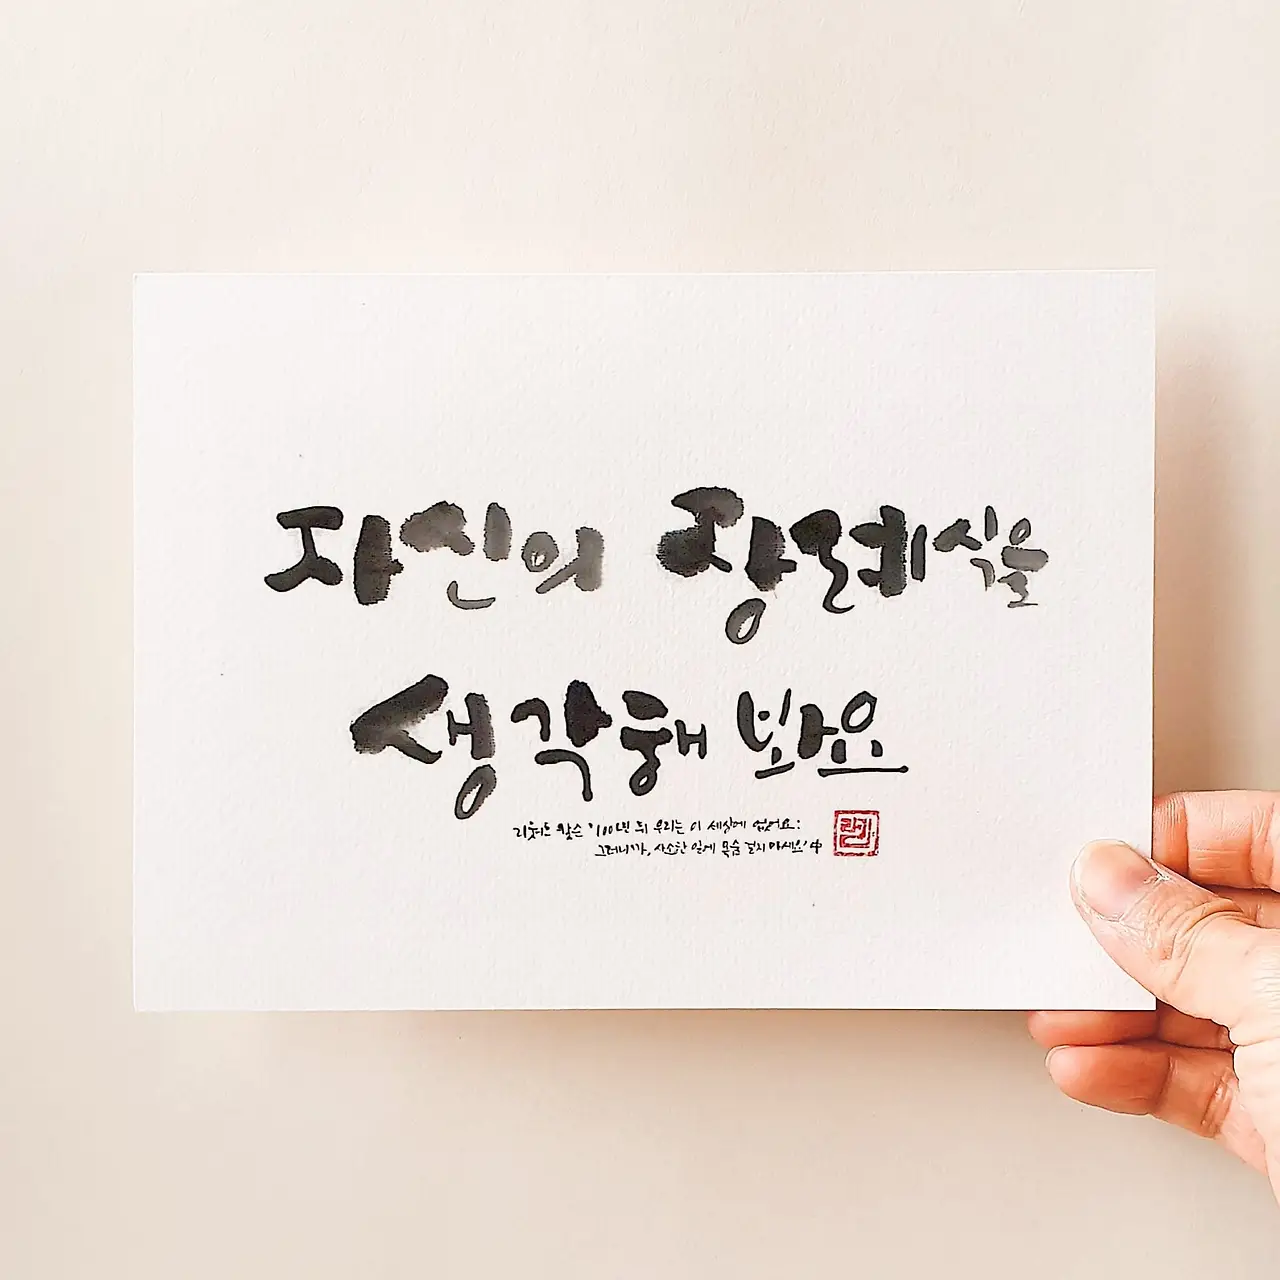 자신의 장례식을
생각해 보아요
리처드 칼슨 "100년 뒤 우리는 이 세상에 없어요:
그러니까, 사소한 일에 목숨 걸지 마세요" 中